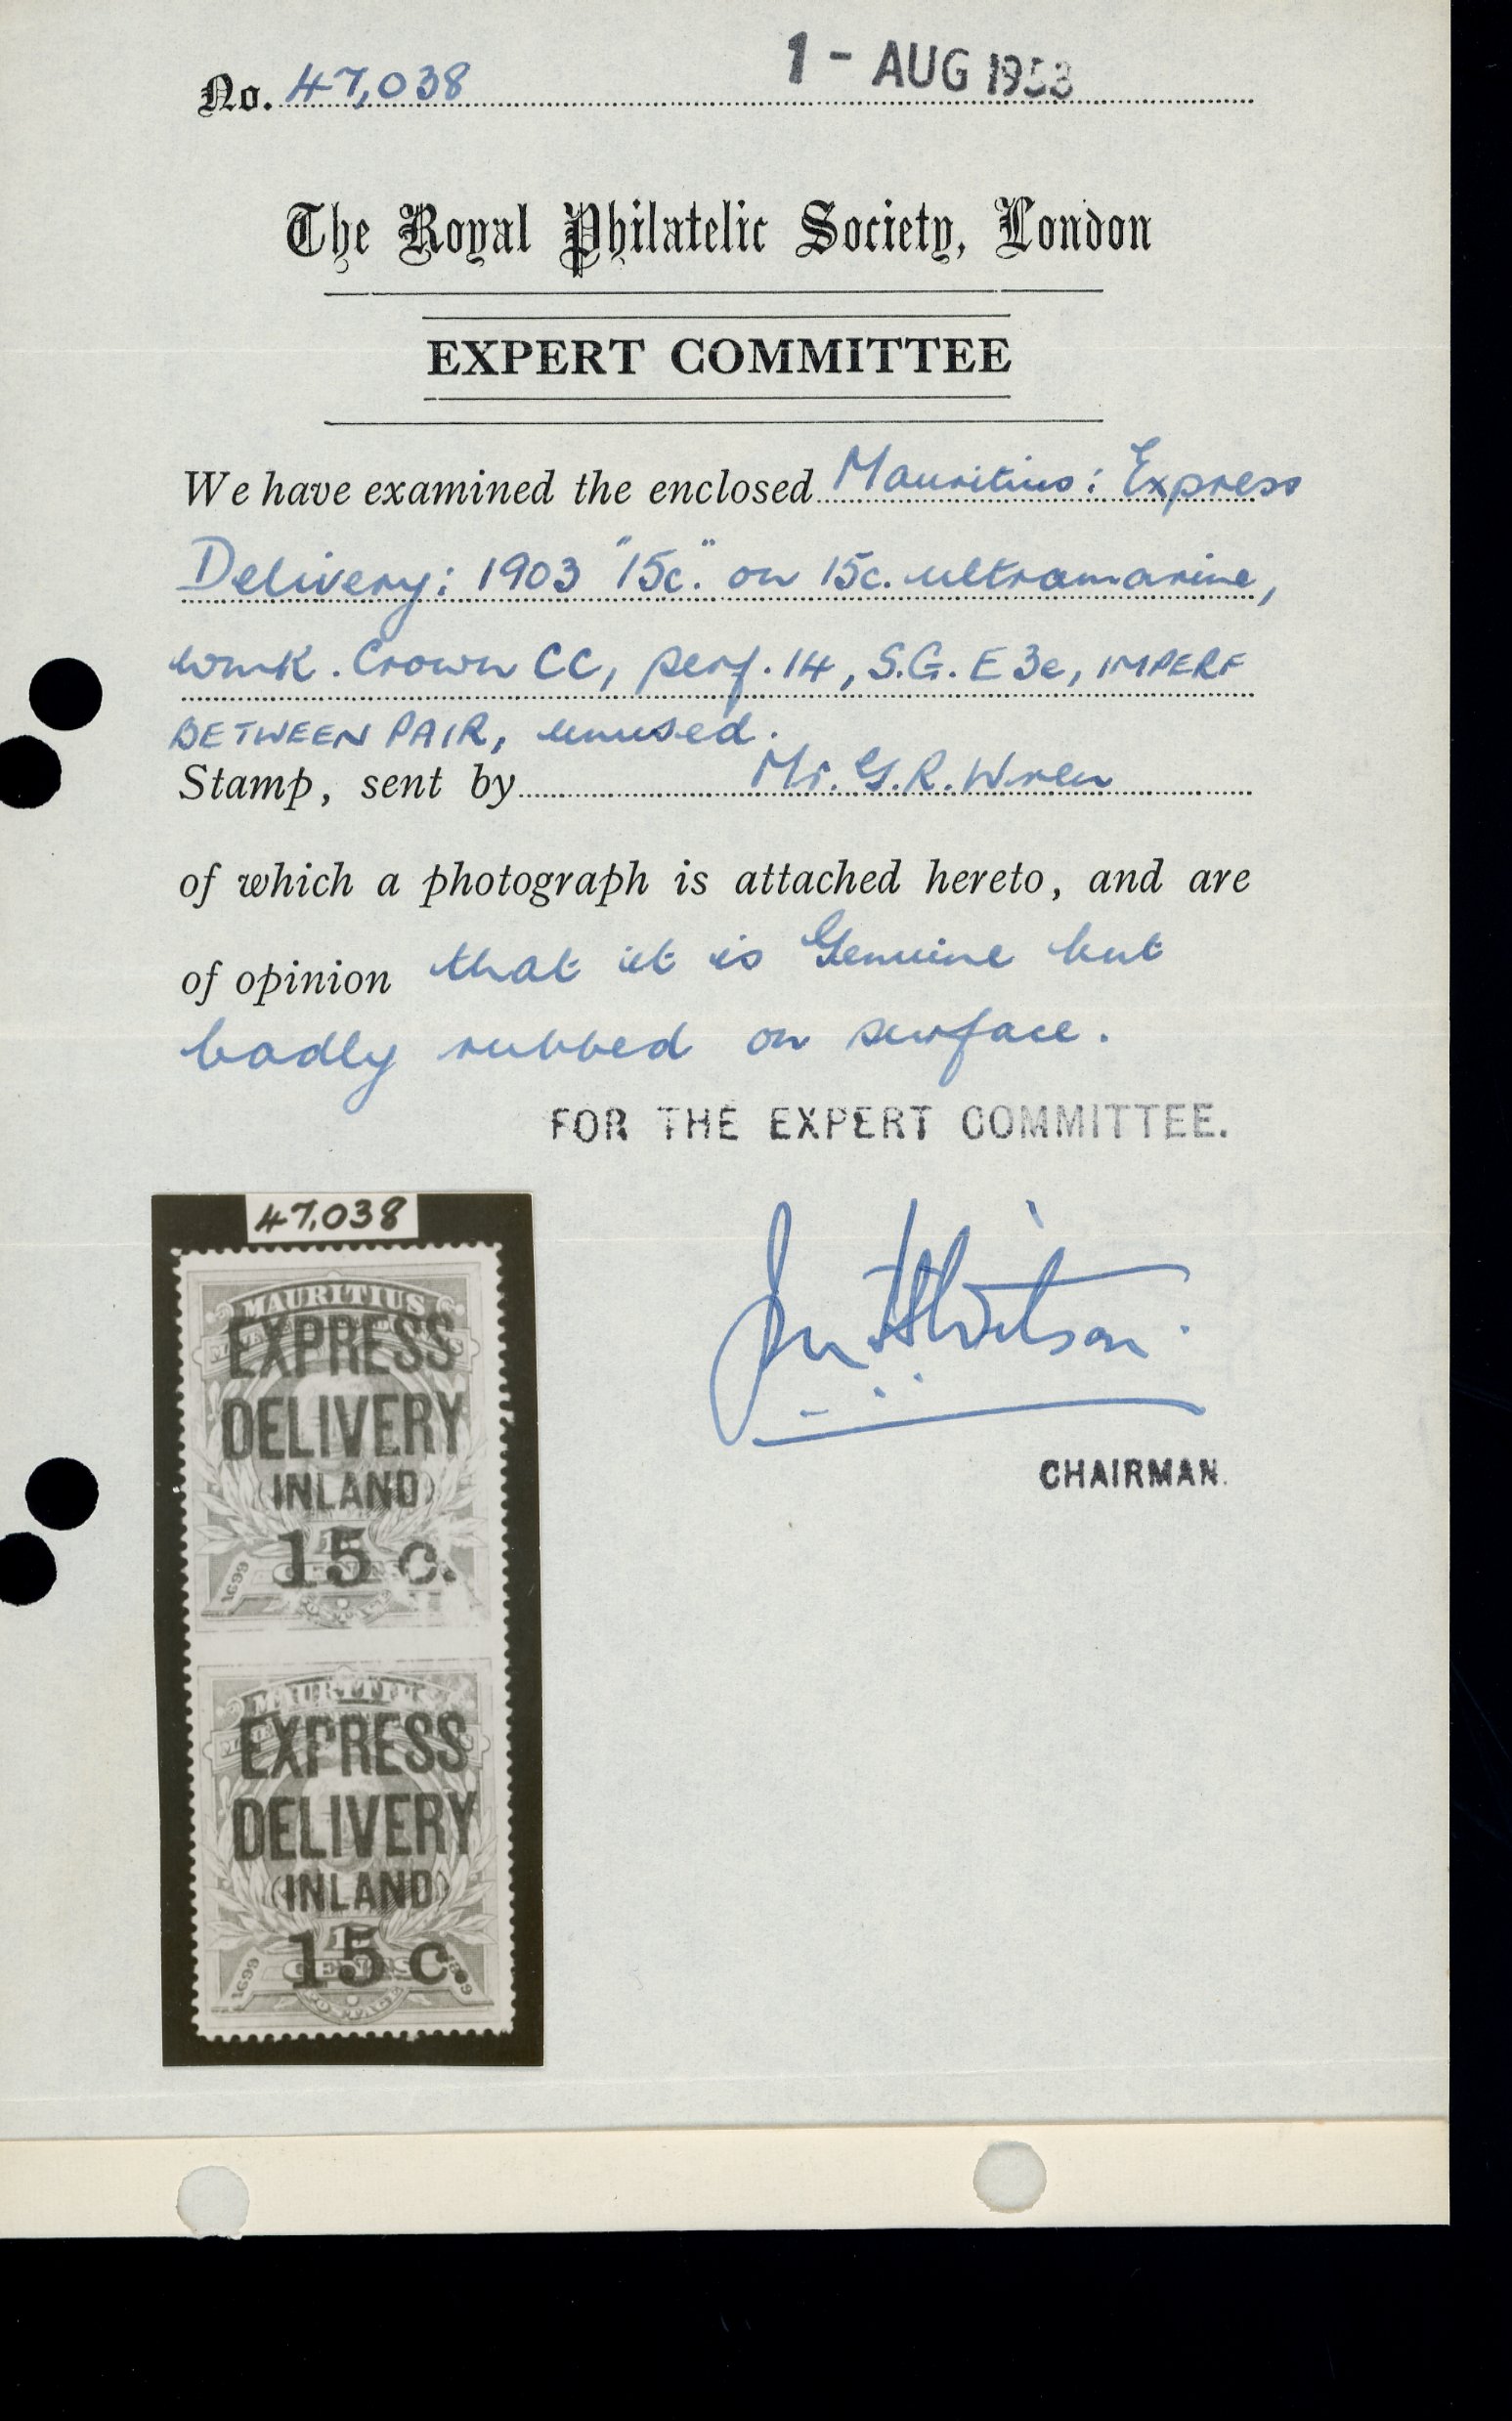 No. 47,038 1 - AUG 1953
The Royal Philatelic Society, London
EXPERT COMMITTEE
We have examined the enclosed Mauritius: Express
Delivery: 1903 "15c." on 15c. ultramarine,
wmk. Crown CC, perf. 14, S.G. E3e, IMPERF
BETWEEN PAIR, unused.
Stamp, sent by Mr. G.R. Wren
of which a photograph is attached hereto, and are
of opinion that it is Genuine but
badly rubbed on surface.
FOR THE EXPERT COMMITTEE.
CHAIRMAN.
47,038
MAURITIUS
EXPRESS
DELIVERY
(INLAND)
15 c.
1699
MAURITIUS
EXPRESS
DELIVERY
(INLAND)
15 c.
CENTS
1699 1899
POSTAGE